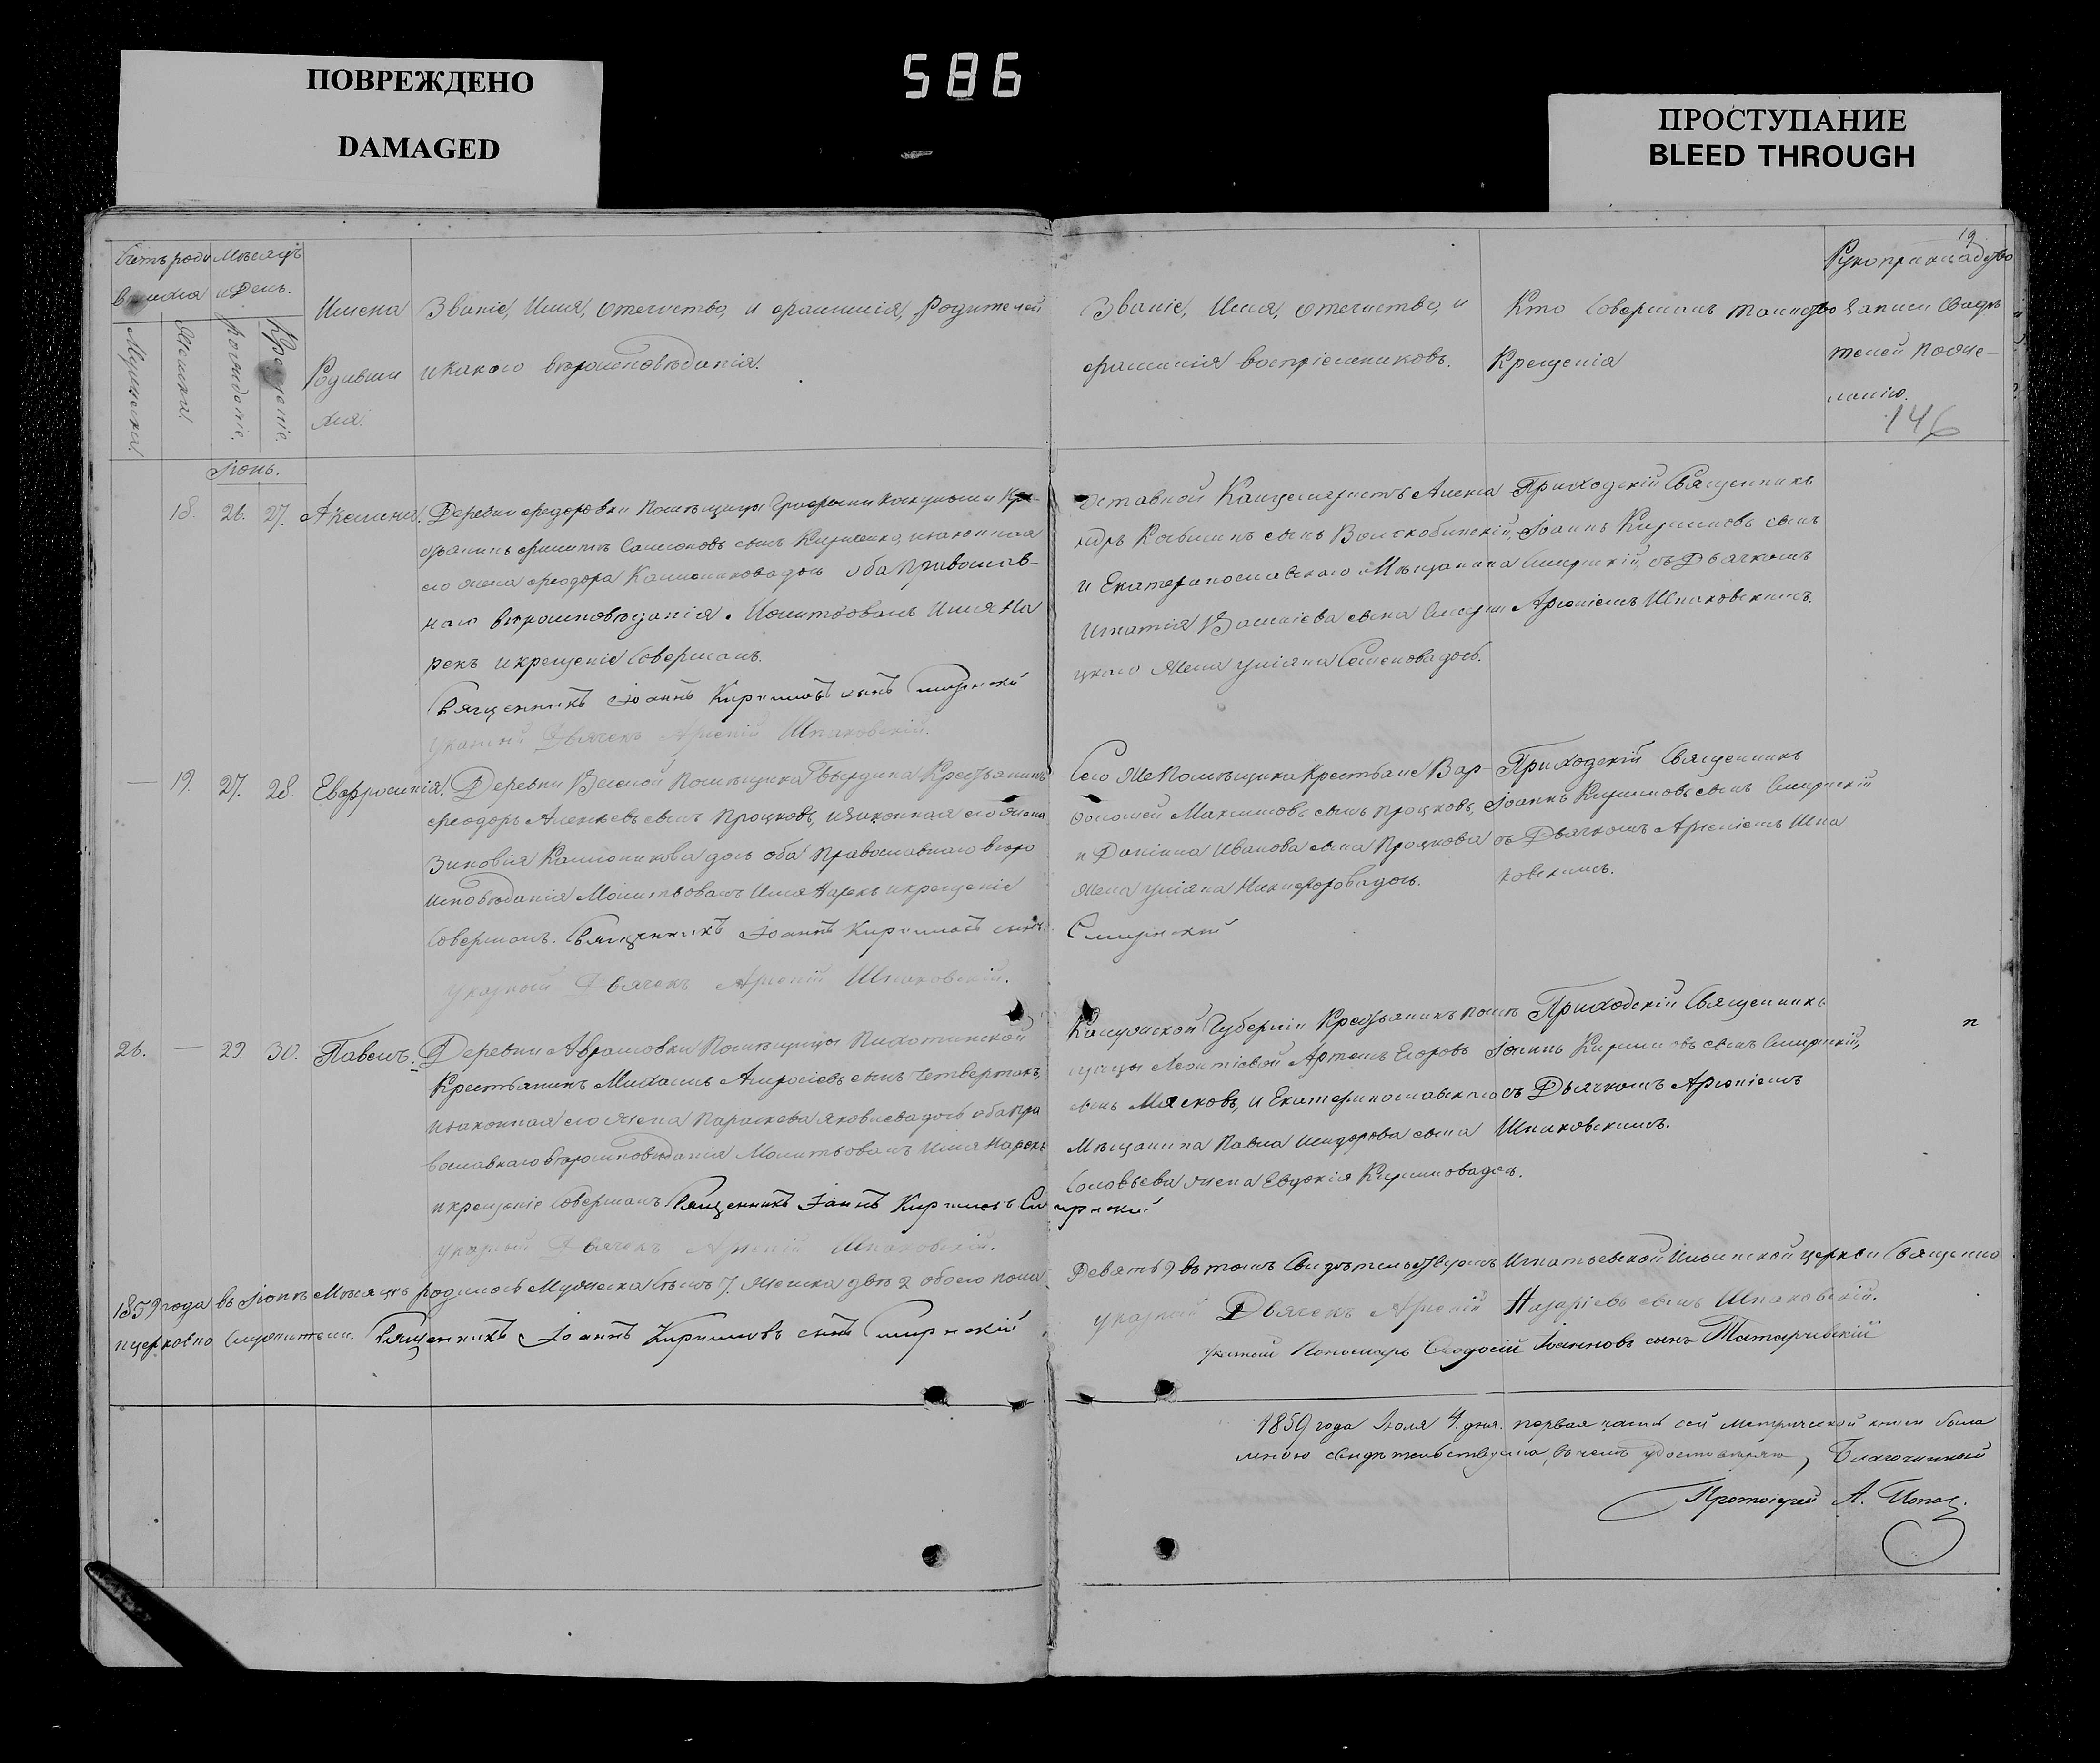 ПОВРЕЖДЕНО
DAMAGED
586
ПРОСТУПАНИЕ
BLEED THROUGH
19
146
Счетъ роди
вшихся
Мѣсяцъ
и День.
Мужеска.
Женска.
рожденіе.
Крещеніе.
Имена
Родивши
хся.
Званіе, Имя, отечество, и фамилія, Родителей
и какого вѣроисповѣданія.
Званіе, Имя, отечество, и
фамилія воспріемниковъ.
Кто Совершалъ таинство
Крещенія
Рукоприкладство
записи Свидѣ
телей по же-
ланію.
Іюнь.
18. 26. 27. Акелина. Деревни Федоровки Помѣщицы
Филиппъ Самсоновъ сынъ Кириченко, и законная
его жена Феодора Калиникова дочь оба Православ-
наго вѣроисповѣданія. Молитвовалъ Имя На
рекъ и крещеніе Совершалъ.
Священникъ Іоаннъ Кирилловъ сынъ Смирнскій
указный Дьячекъ Арсеній Шпаковскій.
отставной Канцеляристъ Алекса
ндръ сынъ
и Екатеринославскаго Мѣщанина
Игнатія Василіева сына
цкаго Жена Уліяна Семенова дочь.
Приходскій Священникъ
Іоаннъ Кирилловъ сынъ
Смирнскій, съ Дьячкомъ
Арсеніемъ Шпаковскимъ.
— 19. 27. 28. Евфросинія. Деревни Веселой Помѣщика Гвыздика Крестьянинъ
Феодоръ Алексѣевъ сынъ Процковъ, и законная его жена
Зиновія Калиникова дочь оба Православнаго вѣро
исповѣданія Молитвовалъ Имя Нарекъ и крещеніе
Совершалъ. Священникъ Іоаннъ Кирилловъ сынъ
Смирнскій
указный Дьячекъ Арсеній Шпаковскій.
Сего Же Помѣщика Крестьяне Вар-
фоломей Максимовъ сынъ Процковъ,
и Даніила Иванова сына Процкова
жена Уліяна Никифорова дочь.
Приходскій Священникъ
Іоаннъ Кирилловъ сынъ Смирнскій
съ Дьячкомъ Арсеніемъ Шпа
ковскимъ.
26. — 29. 30. Павелъ. Деревни Аврамовки Помѣщицы Пихотинской
Крестьянинъ Михаилъ Амвросіевъ сынъ Четвертакъ,
и законная его жена Параскева Яковлева дочь оба пра
вославнаго вѣроисповѣданія Молитвовалъ Имя Нарекъ
и крещеніе Совершалъ Священникъ Іоаннъ Кирилловъ Смирнскій
указный Дьячекъ Арсеній Шпаковскій.
Калужской Губерніи Крестьянинъ помѣ
щицы Леонтіевой Артемъ Егоровъ
сынъ Мясковъ, и Екатеринославскаго
Мѣщанина Павла Исидорова сына
Соловьева жена Евдокія Кирилова дочь.
Приходскій Священникъ
Іоаннъ Кирилловъ сынъ Смирнскій,
съ Дьячкомъ Арсеніемъ
Шпаковскимъ.
1859 года въ Іюнѣ Мѣсяцѣ родилось Мужеска Семь 7. Женска двѣ 2 обоего пола
Девять 9 въ томъ Свидѣтельствуемъ Игнатьевской Ильинской церкви Священно
и церковно служители. Священникъ Іоаннъ Кирилловъ сынъ Смирнскій
указный Дьячекъ Арсеній Назаріевъ сынъ Шпаковскій.
указный Пономарь Феодосій Іоанновъ сынъ Татарчевскій
1859 года Іюля 4. дня. первая часть сей метрической книги была
мною свидѣтельствуема, въ чемъ удостовѣряю, Благочинный
Протоіерей А. Попов.